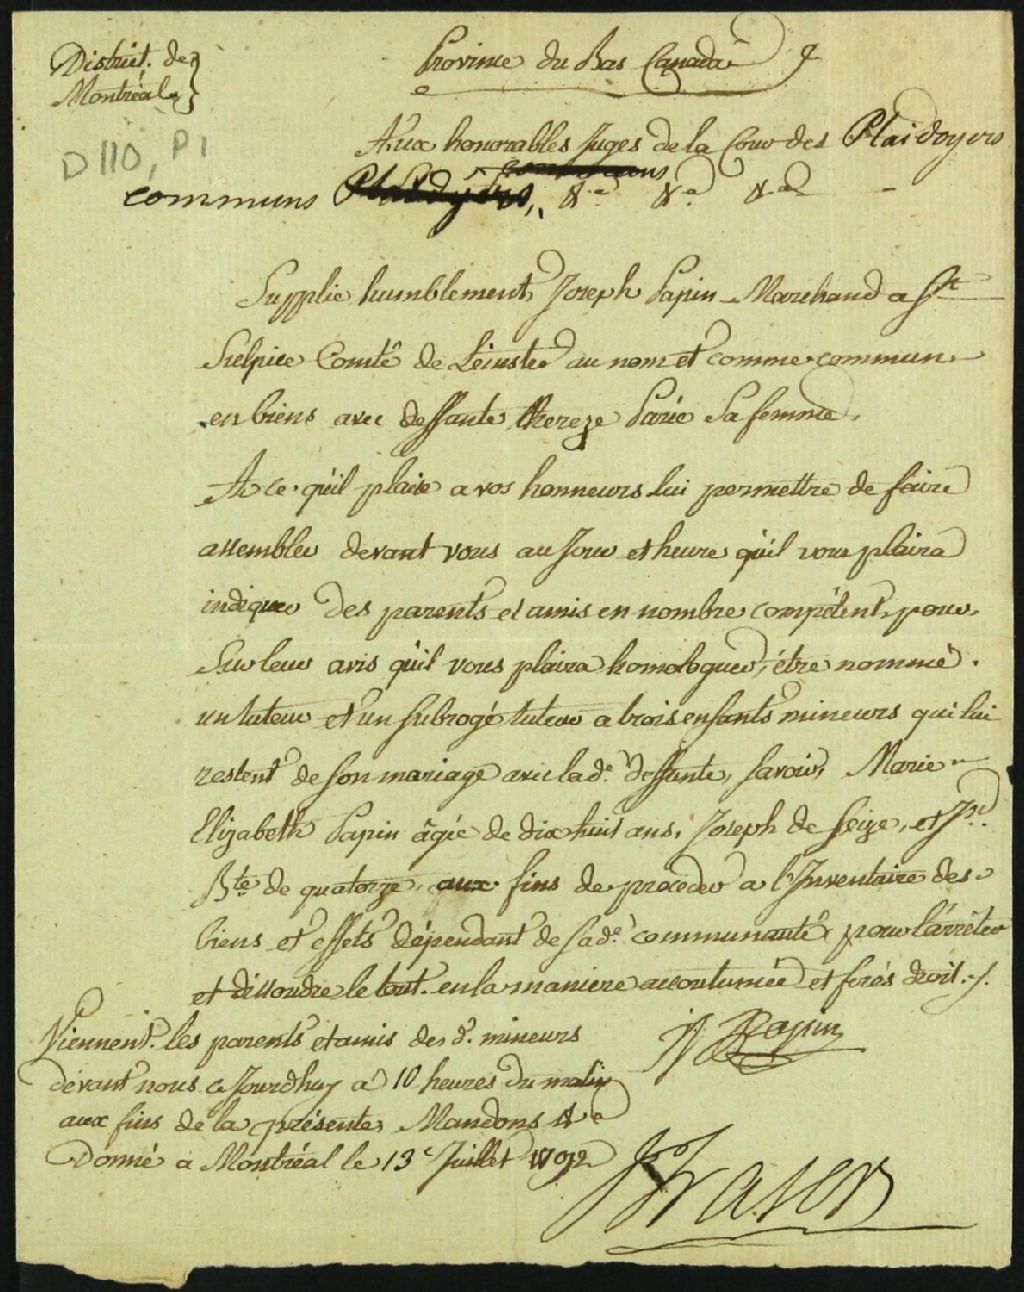 District. de }
Montréal }
Province du Bas Canada
D 110, P 1
Aux honorables Juges de la Cour des Plaidoyers
communs &ca &ca &ca
Supplie humblement Joseph Papin Marchand a St
Sulpice Comté de Leinster au nom et comme commun
en biens avec deffunte thereze Parié Sa femme.
A ce qu'il plaise a vos honneurs lui permettre de faire
assembler devant vous au Jour et heure qu'il vous plaira
indiquer des parents et amis en nombre compétent, pour
Sur leur avis qu'il vous plaira homologuer, être nommé
un tuteur et un subrogé tuteur a trois enfants mineurs qui lui
restent de son mariage avec lade. deffunte, savoir, Marie
Elizabeth Papin âgée de dix huit ans, Joseph de seize, et Jn
Bte de quatorze, aux fins de proceder a l'Inventaire des
biens et effets dépendant de sade. communauté, pour l'arrêter
et dissoudre le tout en la maniere accoutumée et ferés droit.
J Papin
Viennent les parents et amis des d. mineurs
devant nous ce Jourdhuy à 10 heures du matin
aux fins de la présente, Mandons &c
Donné à Montréal le 13e Juillet 1792
J Fraser